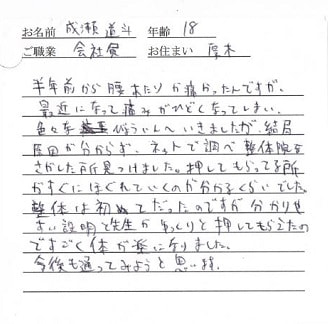 お名前 成瀬 道斗 年齢 18
ご職業 会社員 お住まい 厚木
半年前から腰あたりが痛かったんですが、
最近になって痛みがひどくなってしまい、
色々な びょういんへいきましたが、結局
原因が分からず、ネットで調べ整体院を
さがした所見つけました。押してもらってる所
がすぐにほぐれていくのが分かるくらいでした。
整体は初めてだったのですが分かりや
すい説明と先生がゆっくりと押してもらえたの
ですごく体が楽になりました。
今後も通ってみようと思います。